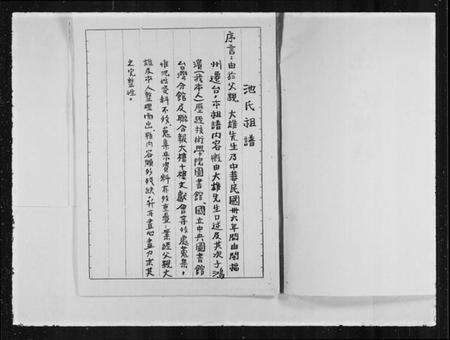 池氏祖譜
序言：由於父親 大雄先生乃中華民國卅六年間由閩揚
州遷台，本祖譜內容概由大雄先生口述及其次子鴻
濱(我本人)歷經技術學院圖書館 國立中央圖書館
台灣分館及聯合報大樓十樓文獻會等等處蒐集，
惟池姓資料不多，蒐集來資料有些重疊，業經父親大
雄及本人整理而出，雖內容頗多殘缺，並再盡心盡力求其
之完整性。